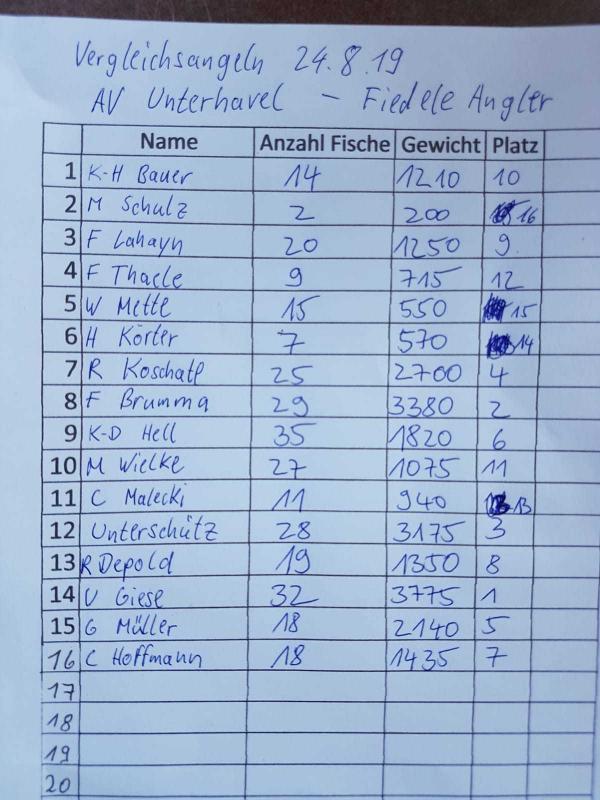 Vergleichsangeln 24.8.19
AV Unterhavel – Fiedele Angler
Name Anzahl Fische Gewicht Platz
1 K-H Bauer 14 1210 10
2 M Schulz 2 200 16
3 F Lahayn 20 1250 9
4 F Thaele 9 715 12
5 W Mette 15 550 15
6 H Körter 7 570 14
7 R Koschatl 25 2700 4
8 F Brumma 29 3380 2
9 K-D Hell 35 1820 6
10 M Wielke 27 1075 11
11 C Malecki 11 940 13
12 Unterschütz 28 3175 3
13 R Depold 19 1350 8
14 U Giese 32 3775 1
15 G Müller 18 2140 5
16 C Hoffmann 18 1435 7
17
18
19
20